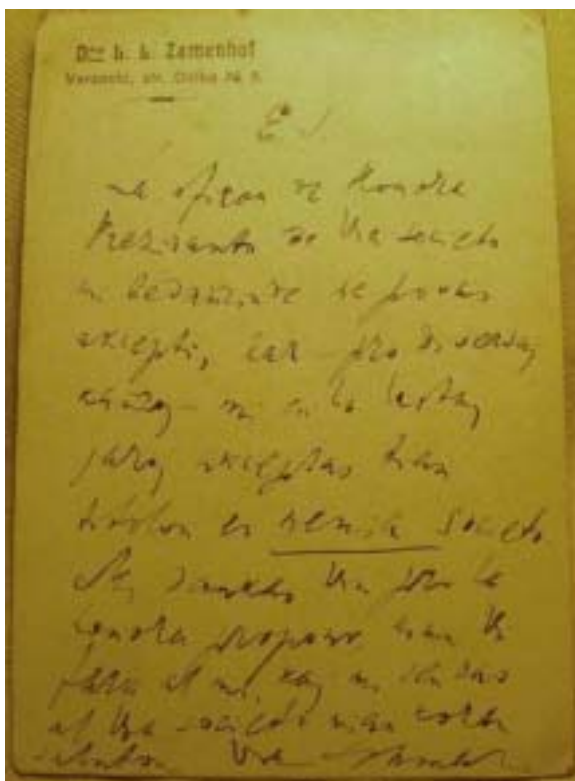 Dro L. L. Zamenhof
Varsovio, str. Dzika № 9.
La oficon de Honora
Prezidanto de Via societo
mi bedaŭrinde ne povas
akcepti, ĉar pro diversaj
kaŭzoj mi en la lastaj
jaroj akceptas tian
titolon en neniu societo
Mi dankas Vin pro la
honora propono, kiun Vi
faris al mi, kaj mi sendas
al Via societo mian koran
saluton Via Zamenhof